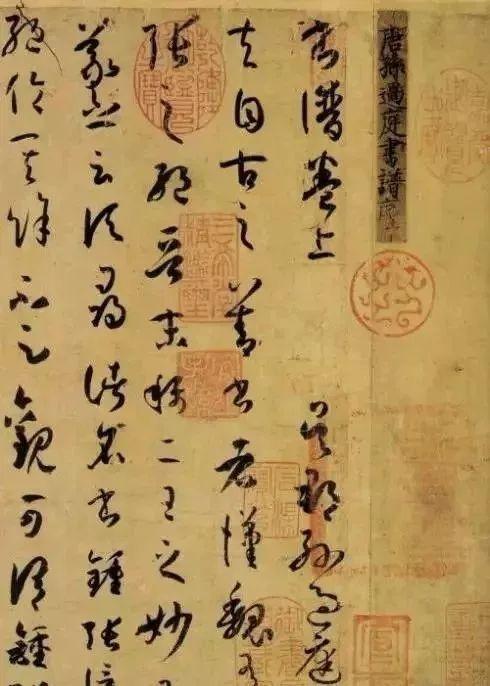 唐孫過庭書譜序
書譜卷上 吳郡孫過庭
夫自古之善書者漢魏有
張之絕晉末稱二王之妙王
羲之云頃尋諸名書鍾張信
絕倫其餘不足觀可謂鍾張